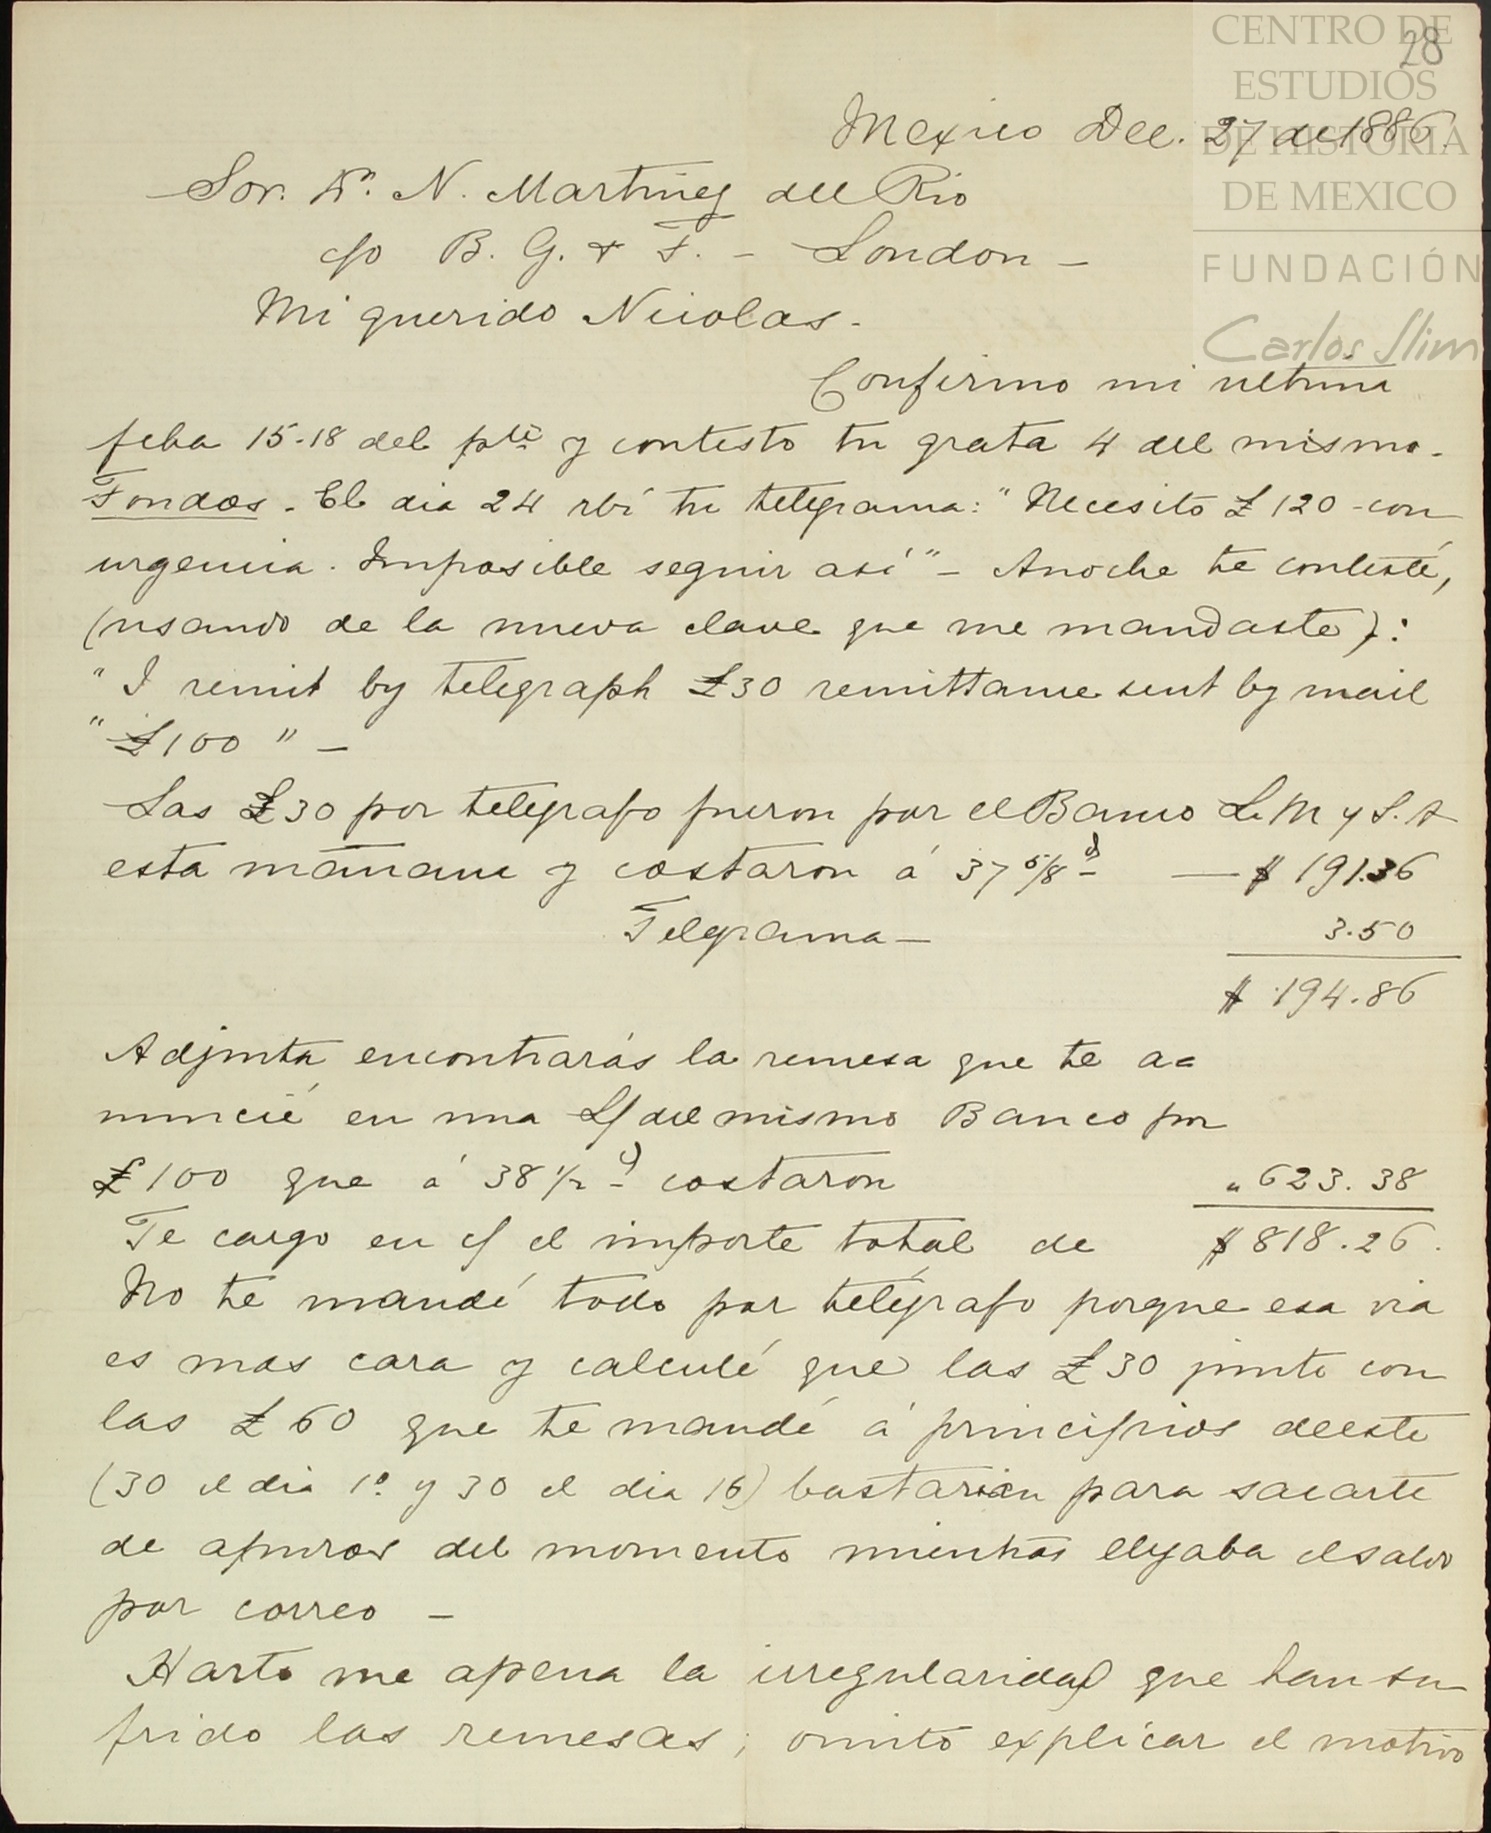 CENTRO DE
ESTUDIOS
DE HISTORIA
DE MEXICO
FUNDACIÓN
Carlos Slim
28
Mexico Dec. 27 de 1886.
Sor. Dn. N. Martinez del Rio
c/o B. G. & F. - London -
Mi querido Nicolas.
Confirmo mi ultima
feha 15-18 del pte y contesto tu grata 4 del mismo.
Fondos. El dia 24 rbí tu telegrama: "Necesito £120 - con
urgencia. Imposible seguir así" - Anoche te contesté,
(usando de la nueva clave que me mandaste):
"I remit by telegraph £30 remittance sent by mail
"£100" -
Las £30 por telégrafo fueron por el Banco L. M y S. A
esta mañana y costaron á 37 5/8 d — $ 191.36
Telegrama — 3.50
$ 194.86
Adjunta encontrarás la remesa que te a=
nuncié en una L/ del mismo Banco por
£100 que á 38 1/2 d costaron " 623.38
Te cargo en c/ el importe total de $ 818.26.
No te mandé todo por telégrafo porque esa via
es mas cara y calculé que las £30 junto con
las £60 que te mandé á principios de este
(30 el dia 1º y 30 el dia 16) bastarian para sacarte
de apuros del momento mientras llegaba el saldo
por correo -
Harto me apena la irregularidad que han su
frido las remesas; omito explicar el motivo